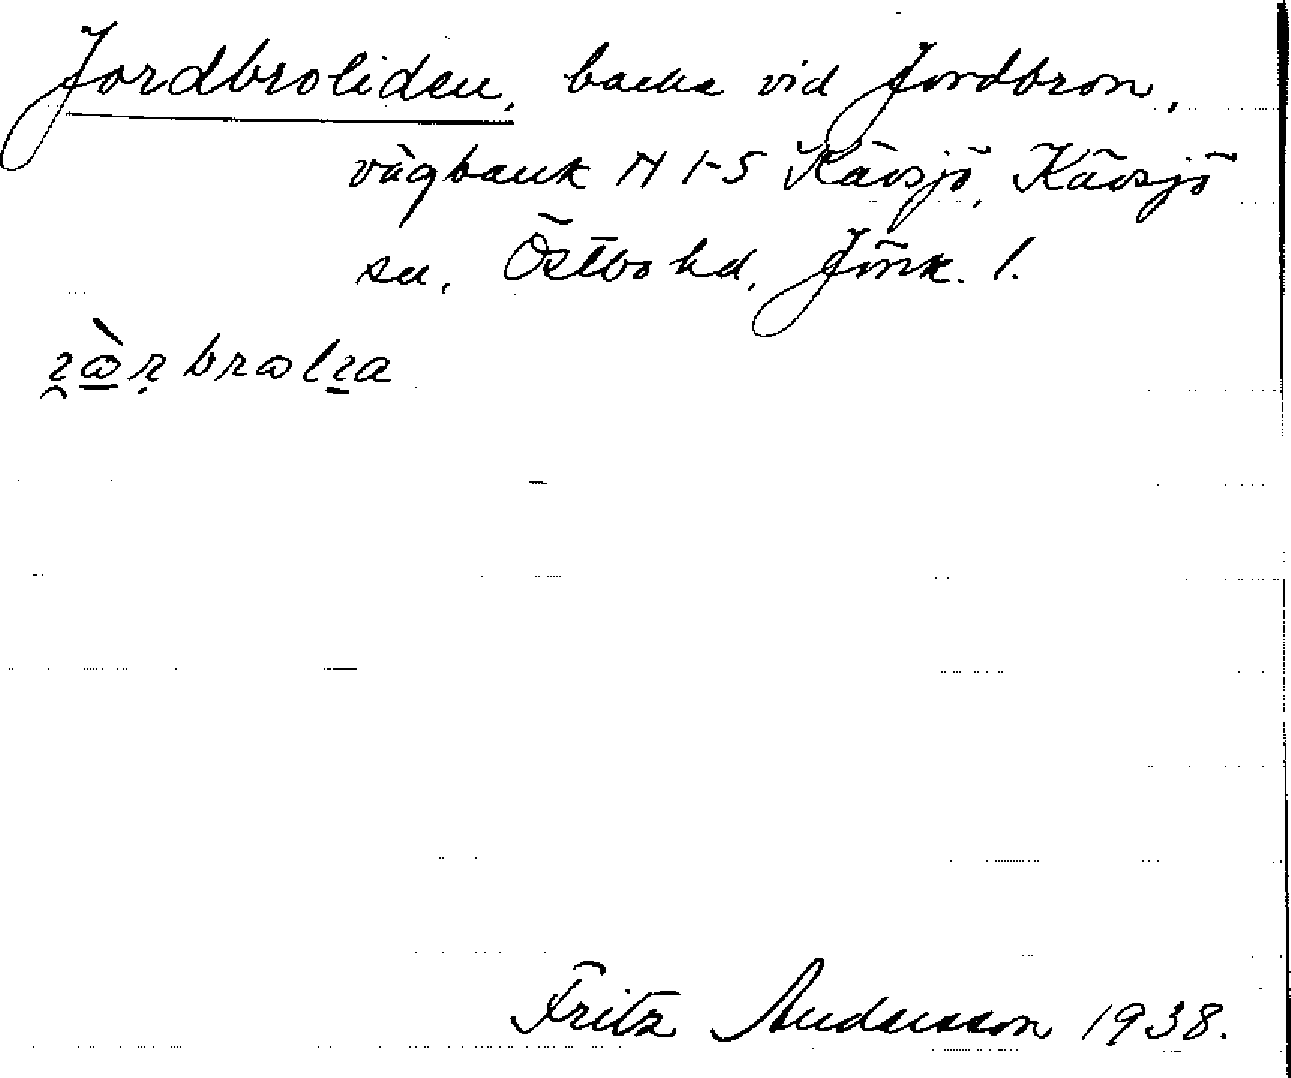 Jordbroliden, backe vid Jordbron,
vägbank N 1-5 Kävsjö, Kävsjö
sn, Östbo hd, Jönk. l.
Fritz Andersson 1938.